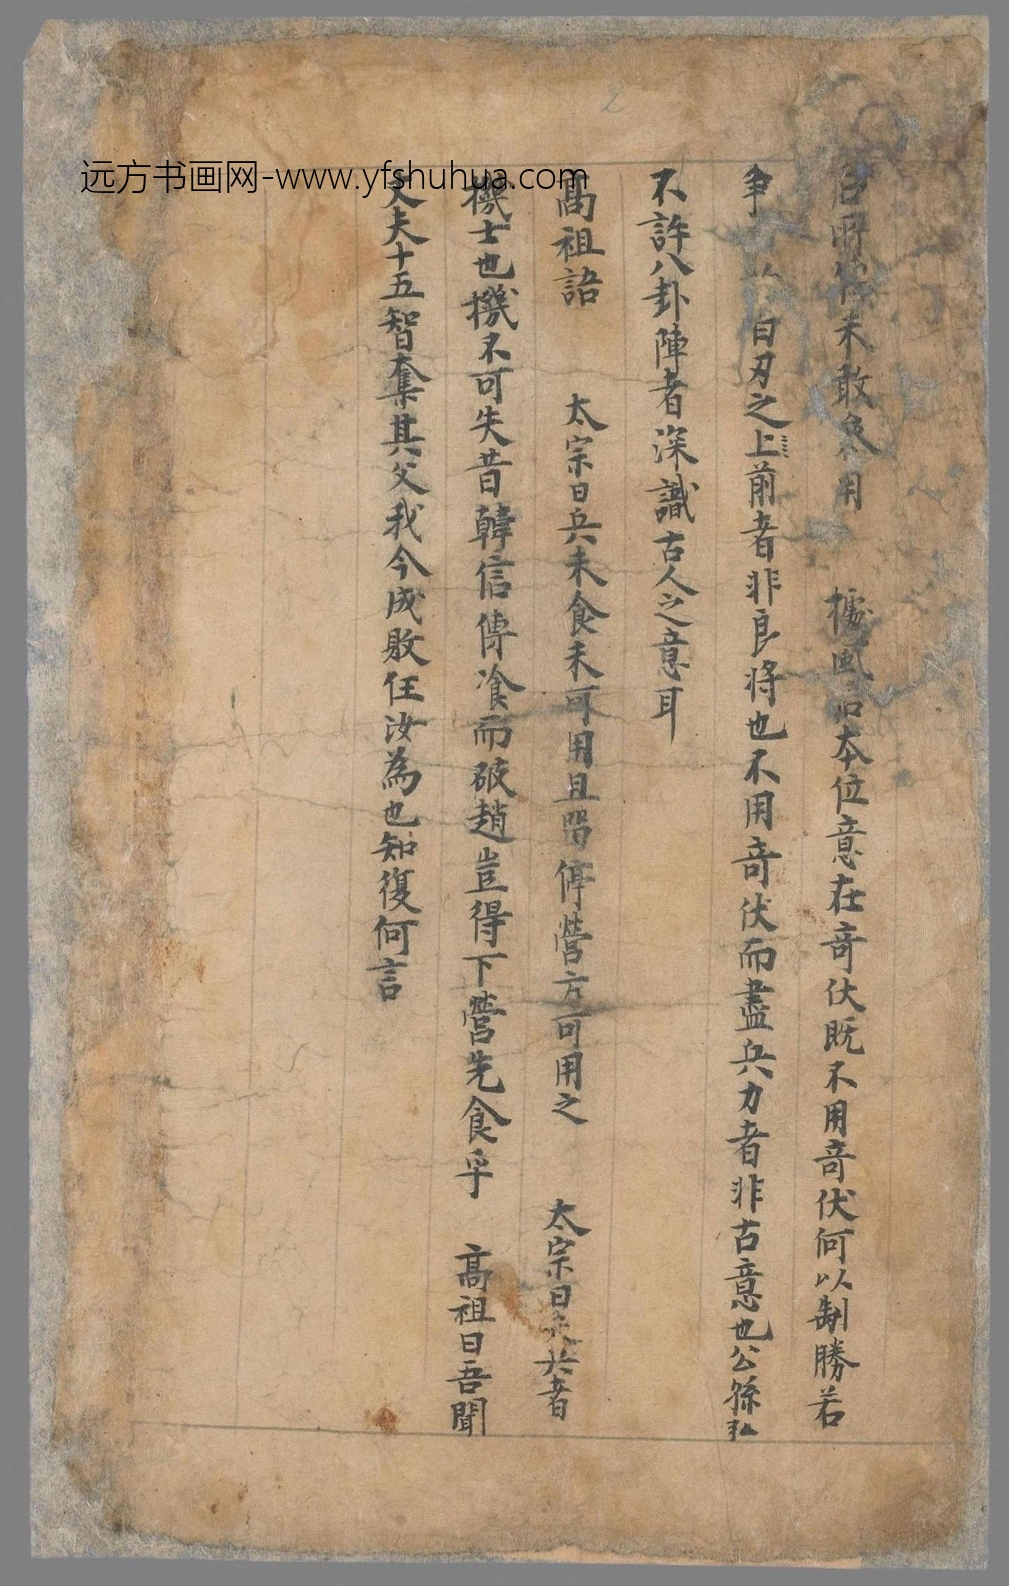 未敢用 據風后本位意在奇伏既不用奇伏何以制勝若
爭白刃之上前者非良將也不用奇伏而盡兵力者非古意也公孫弘
不許八卦陣者深識古人之意耳
高祖語 太宗曰兵未食未可用且留停營方可用之 太宗曰兵者
機士也機不可失昔韓信傳飡而破趙豈得下營先食乎 高祖曰吾聞
丈夫十五智奪其父我今成敗任汝為也知復何言
远方书画网-www.yfshuhua.com
2